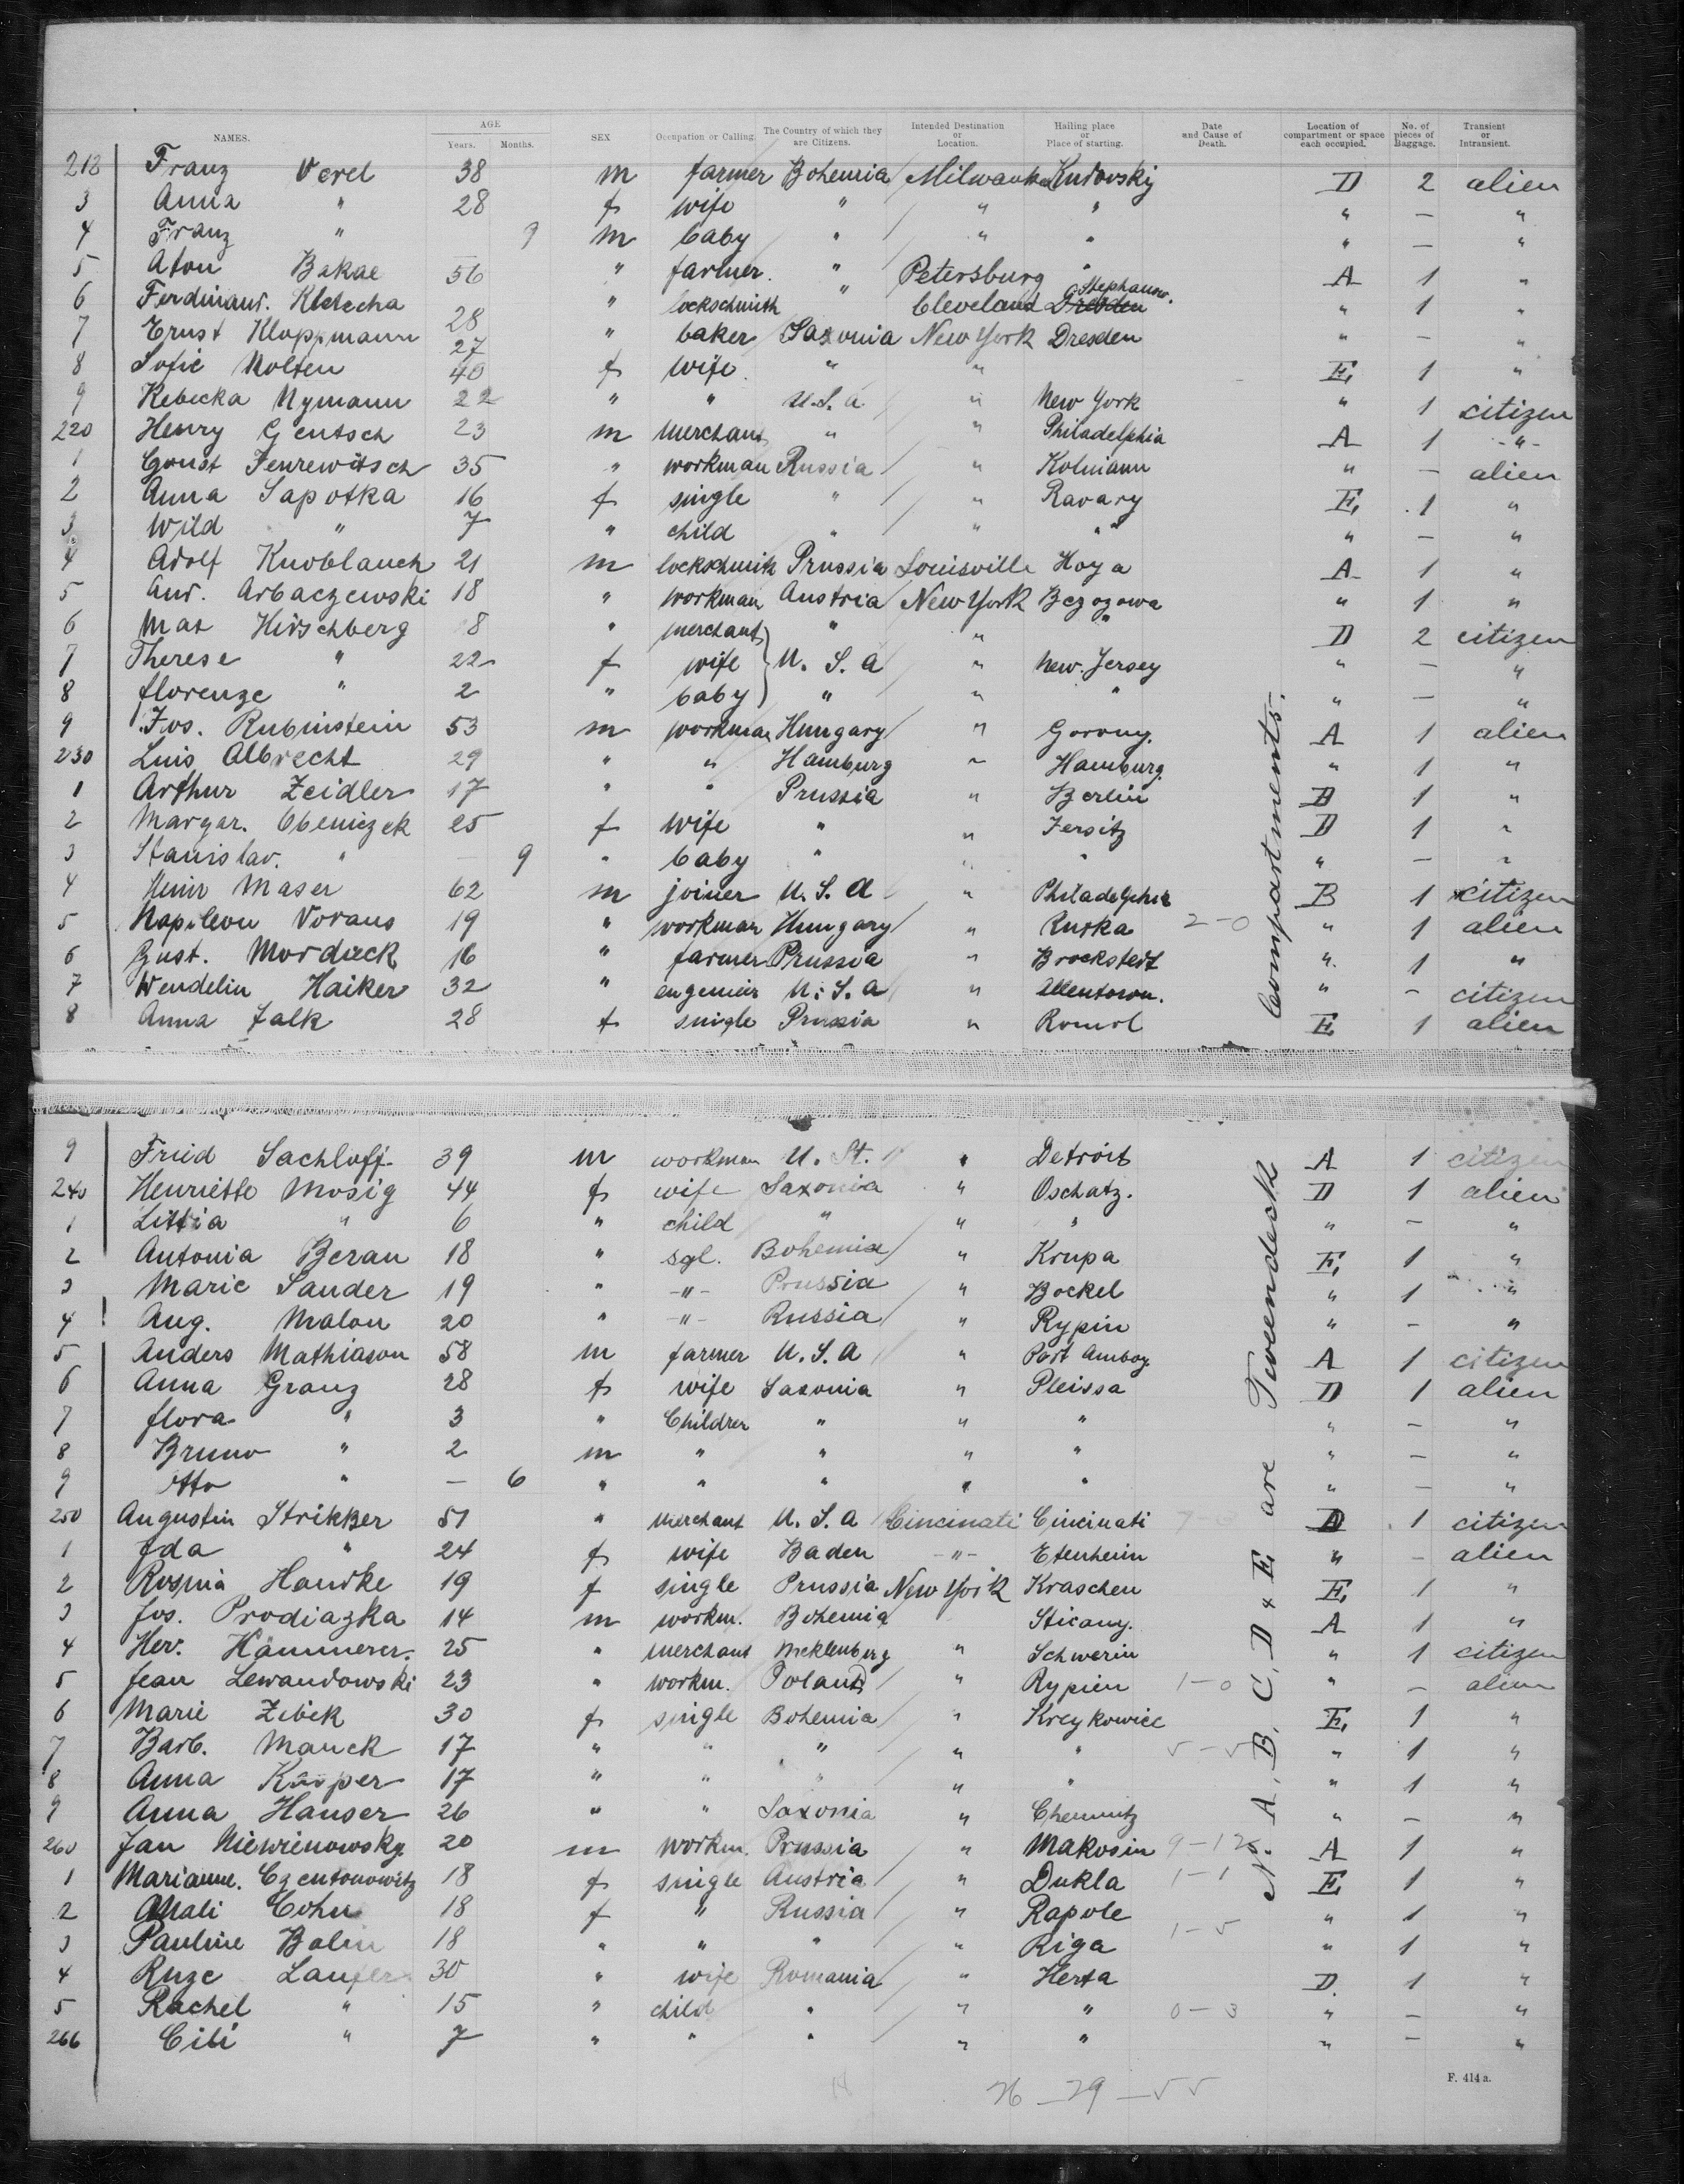 NAMES. AGE Years. Months. SEX Occupation or Calling. The Country of which they are Citizens. Intended Destination or Location. Hailing place or Place of starting. Date and Cause of Death. Location of compartment or space each occupied. No. of pieces of Baggage. Transient or Intransient.
212 Franz Verel 38 m farmer Bohemia Milwaukee D 2 alien
3 Anna " 28 f wife " " " " — "
4 Franz " 9 m baby " " " " — "
5 Aton Bakae 56 " farmer. " Petersburg " A 1 "
6 Ferdinand. Kletecha 28 " lockschmith " Cleveland Dresden Stephanow. " 1 "
7 Ernst Kloppmann 27 " baker Saxonia New York Dresden " — "
8 Sofie Nolten 40 f wife. " " E 1 "
9 Rebecka Nymann 22 " " U.S.a " New York " 1 citizen
220 Henry Gentsch 23 m merchant " " Philadelphia A 1 -"-
1 Jenrewitsch 35 " workman Russia " Kolmann " — alien
2 Anna Sapotka 16 f single " " Ravary E 1 "
3 Wild " 7 " child " " " " — "
4 Adolf Knoblauch 21 m lockschmith Prussia Louisville Hoya A 1 "
5 And. Arbaczewski 18 " workman Austria New York Bezozowa " 1 "
6 Max Hirschberg 8 " merchant " " " D 2 citizen
7 Therese " 22 f wife U. S. a " New. Jersey " — "
8 florenze " 2 " baby " " " " — "
9 Jos. Rubinstein 53 m workman Hungary " Gorony. A 1 alien
230 Luis Albrecht 29 " " Hamburg " Hamburg. " 1 "
1 Arthur Zeidler 17 " " Prussia " Berlin B 1 "
2 Margar. Obeniczek 25 f wife " " Jersitz D 1 "
3 Stanislav. " — 9 " baby " " " " — "
4 Heinr Maser 62 m joiner U. S. a " Philadelphia B 1 citizen
5 Napoleon Vorans 19 " workman Hungary " Ruska 2-0 " 1 alien
6 Gust. Mordieck 16 " farmer Prussia " Brockstedt " 1 "
7 Wendelin Haiker 32 " engenieir U. S. a " Allentown. " — citizen
8 Anna Falk 28 f single Prussia " Romol E 1 alien
9 Fried Sachloff 39 m workman U. St. " Detroit A 1 citizen
240 Henriette Mosig 44 f wife Saxonia " Oschatz. D 1 alien
1 Littia " 6 " child " " " " — "
2 Antonia Beran 18 " sgl. Bohemia " Krupa E 1 "
3 Marie Sander 19 " -"- Prussia " Bockel " 1 "
4 Aug. Malon 20 " -"- Russia " Rypin " — "
5 Anders Mathiason 58 m farmer U. S. a " Port Amboy A 1 citizen
6 Anna Granz 28 f wife Saxonia " Pleissa D 1 alien
7 flora " 3 " Children " " " " — "
8 Bruno " 2 m " " " " " — "
9 Otto " — 6 " " " " " " — "
250 Augustin Strikker 51 " merchant U. S. a Cincinati Cincinati D 1 citizen
1 Ida " 24 f wife Baden -"- Etenheim " — alien
2 Rosina Handke 19 f single Prussia New York Kraschen E 1 "
3 Jos. Prodiazka 14 m workm. Bohemia Sticany. A 1 "
4 Her. Hämmerer. 25 " merchant Mecklenberg " Schwerin " 1 citizen
5 Jean Lewandowski 23 " workm. Poland " Rypien 1-0 " — alien
6 Marie Zibek 30 f single Bohemia " Kreykowice E 1 "
7 Barb. Manck 17 " " " " " 5-5 " 1 "
8 Anna Kasper 17 " " " " " " 1 "
9 Anna Hauser 26 " " Saxonia " Chemnitz " — "
260 Jan Niewienowsky 20 m workm. Prussia " Makosin 9-12 A 1 "
1 Marianne. Czentonowitz 18 f single Austria " Dukla 1-1 E 1 "
2 Mali Cohn 18 f " Russia " Rapole " 1 "
3 Pauline Bolin 18 " " " " Riga 1-5 " 1 "
4 Ruze Laufer 30 " wife Romania " Herta D. 1 "
5 Rachel " 15 " child " " " 0-3 " — "
266 Cili " 7 " " " " " " — "
N. A. B. C. D & E are Tweendeck Compartments.
26 — 29 — 55
F. 414 a.